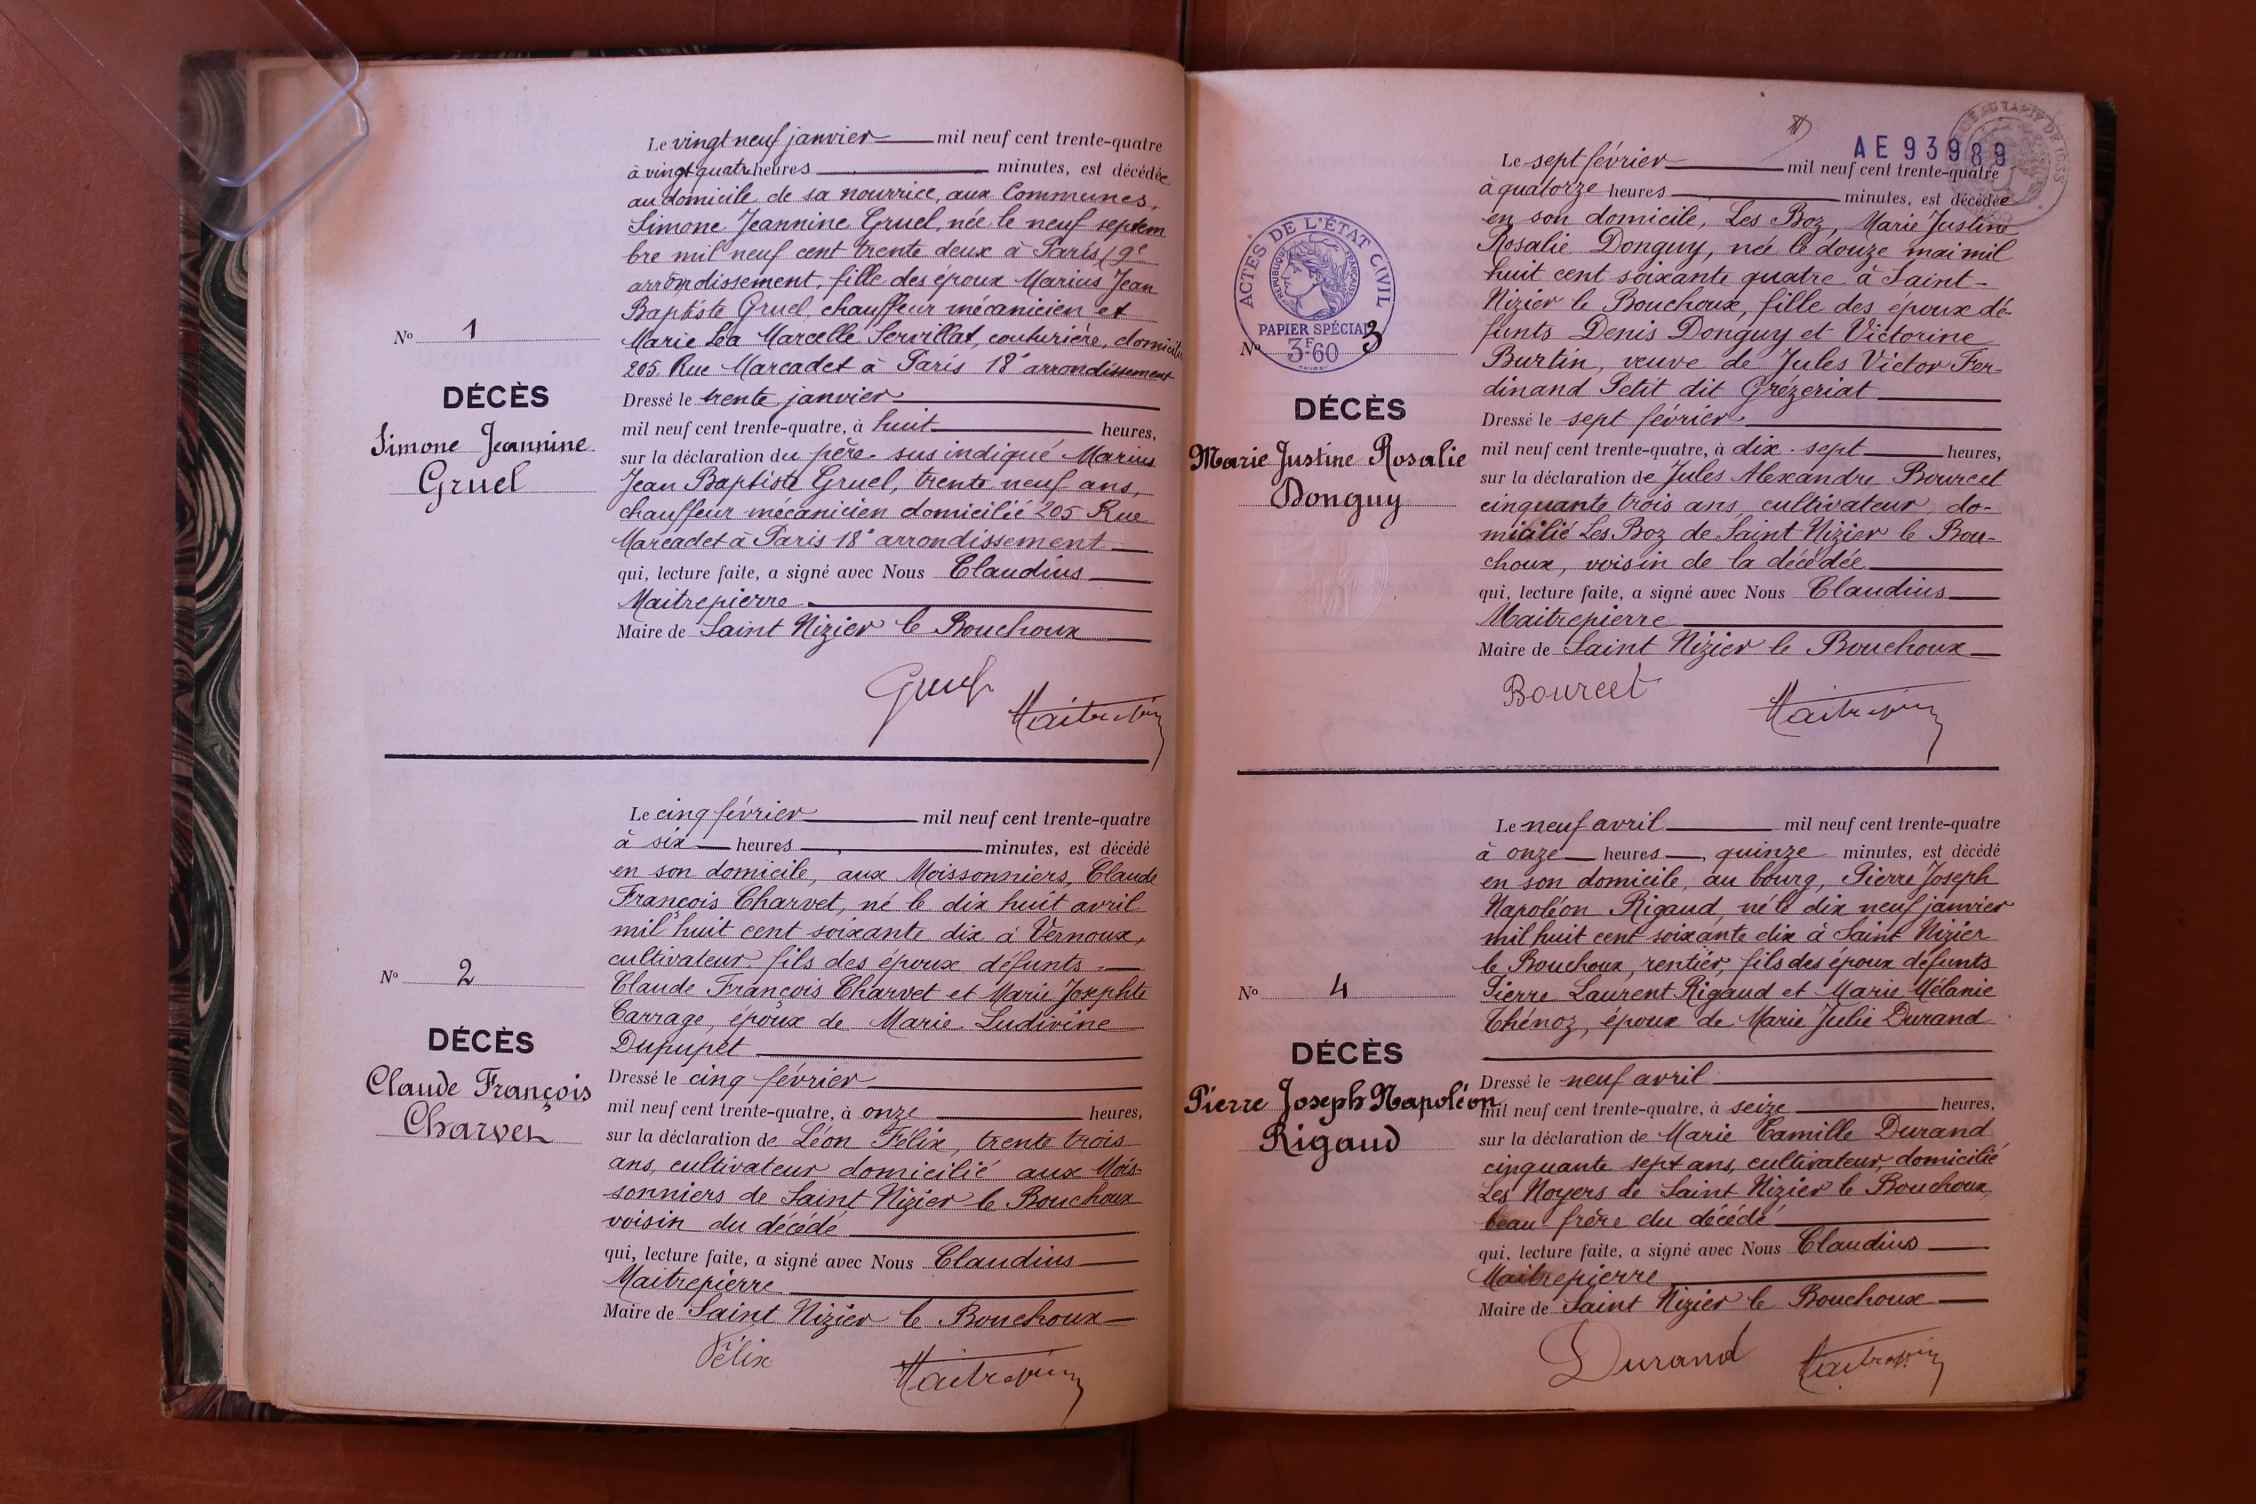 Le vingt neuf janvier mil neuf cent trente-quatre
à vingt quatre heures minutes, est décédée
au domicile de sa nourrice, aux Communes,
Simone Jeannine Gruel, née le neuf septem
bre mil neuf cent trente deux à Paris (9e
arrondissement, fille des époux Marius Jean
Baptiste Gruel, chauffeur mécanicien et
Marie Léa Marcelle Servillat, couturière, domicilié
205 Rue Marcadet à Paris 18e arrondissement
No 1
DÉCÈS
Simone Jeannine
Gruel
Dressé le trente janvier
mil neuf cent trente-quatre, à huit heures,
sur la déclaration du père sus indiqué Marius
Jean Baptiste Gruel, trente neuf ans,
chauffeur mécanicien domicilié 205 Rue
Marcadet à Paris 18e arrondissement
qui, lecture faite, a signé avec Nous Claudius
Maitrepierre
Maire de Saint Nizier le Bouchoux
Gruel
Maitrepierre
Le cinq février mil neuf cent trente-quatre
à six heures minutes, est décédé
en son domicile, aux Moissonniers, Claude
François Charvet, né le dix huit avril
mil huit cent soixante dix à Vernoux,
cultivateur, fils des époux défunts
Claude François Charvet et Marie Josephte
Carrage, époux de Marie Ludivine
Dupupet
No 2
DÉCÈS
Claude François
Charvet
Dressé le cinq février
mil neuf cent trente-quatre, à onze heures,
sur la déclaration de Léon Félix, trente trois
ans, cultivateur domicilié aux Mois-
sonniers de Saint Nizier le Bouchoux
voisin du décédé
qui, lecture faite, a signé avec Nous Claudius
Maitrepierre
Maire de Saint Nizier le Bouchoux
Félix
Maitrepierre
AE 93989
ACTES DE L'ÉTAT CIVIL
RÉPUBLIQUE FRANÇAISE
PAPIER SPÉCIAL
3F60
Le sept février mil neuf cent trente-quatre
à quatorze heures minutes, est décédée
en son domicile, Les Boz, Marie Justine
Rosalie Donguy, née le douze mai mil
huit cent soixante quatre à Saint-
Nizier le Bouchoux, fille des époux dé-
funts Denis Donguy et Victorine
Burtin, veuve de Jules Victor Fer-
dinand Petit dit Grézeriat
No 3
DÉCÈS
Marie Justine Rosalie
Donguy
Dressé le sept février
mil neuf cent trente-quatre, à dix-sept heures,
sur la déclaration de Jules Alexandre Bourcet
cinquante trois ans, cultivateur, do-
micilié Les Boz de Saint Nizier le Bou-
choux, voisin de la décédée
qui, lecture faite, a signé avec Nous Claudius
Maitrepierre
Maire de Saint Nizier le Bouchoux
Bourcet
Maitrepierre
Le neuf avril mil neuf cent trente-quatre
à onze heures, quinze minutes, est décédé
en son domicile, au bourg, Pierre Joseph
Napoléon Rigaud, né le dix neuf janvier
mil huit cent soixante dix à Saint Nizier
le Bouchoux, rentier, fils des époux défunts
Pierre Laurent Rigaud et Marie Mélanie
Thénoz, époux de Marie Julie Durand
No 4
DÉCÈS
Pierre Joseph Napoléon
Rigaud
Dressé le neuf avril
mil neuf cent trente-quatre, à seize heures,
sur la déclaration de Marie Camille Durand
cinquante sept ans, cultivateur, domicilié
Les Noyers de Saint Nizier le Bouchoux,
beau-frère du décédé
qui, lecture faite, a signé avec Nous Claudius
Maitrepierre
Maire de Saint Nizier le Bouchoux
Durand
Maitrepierre